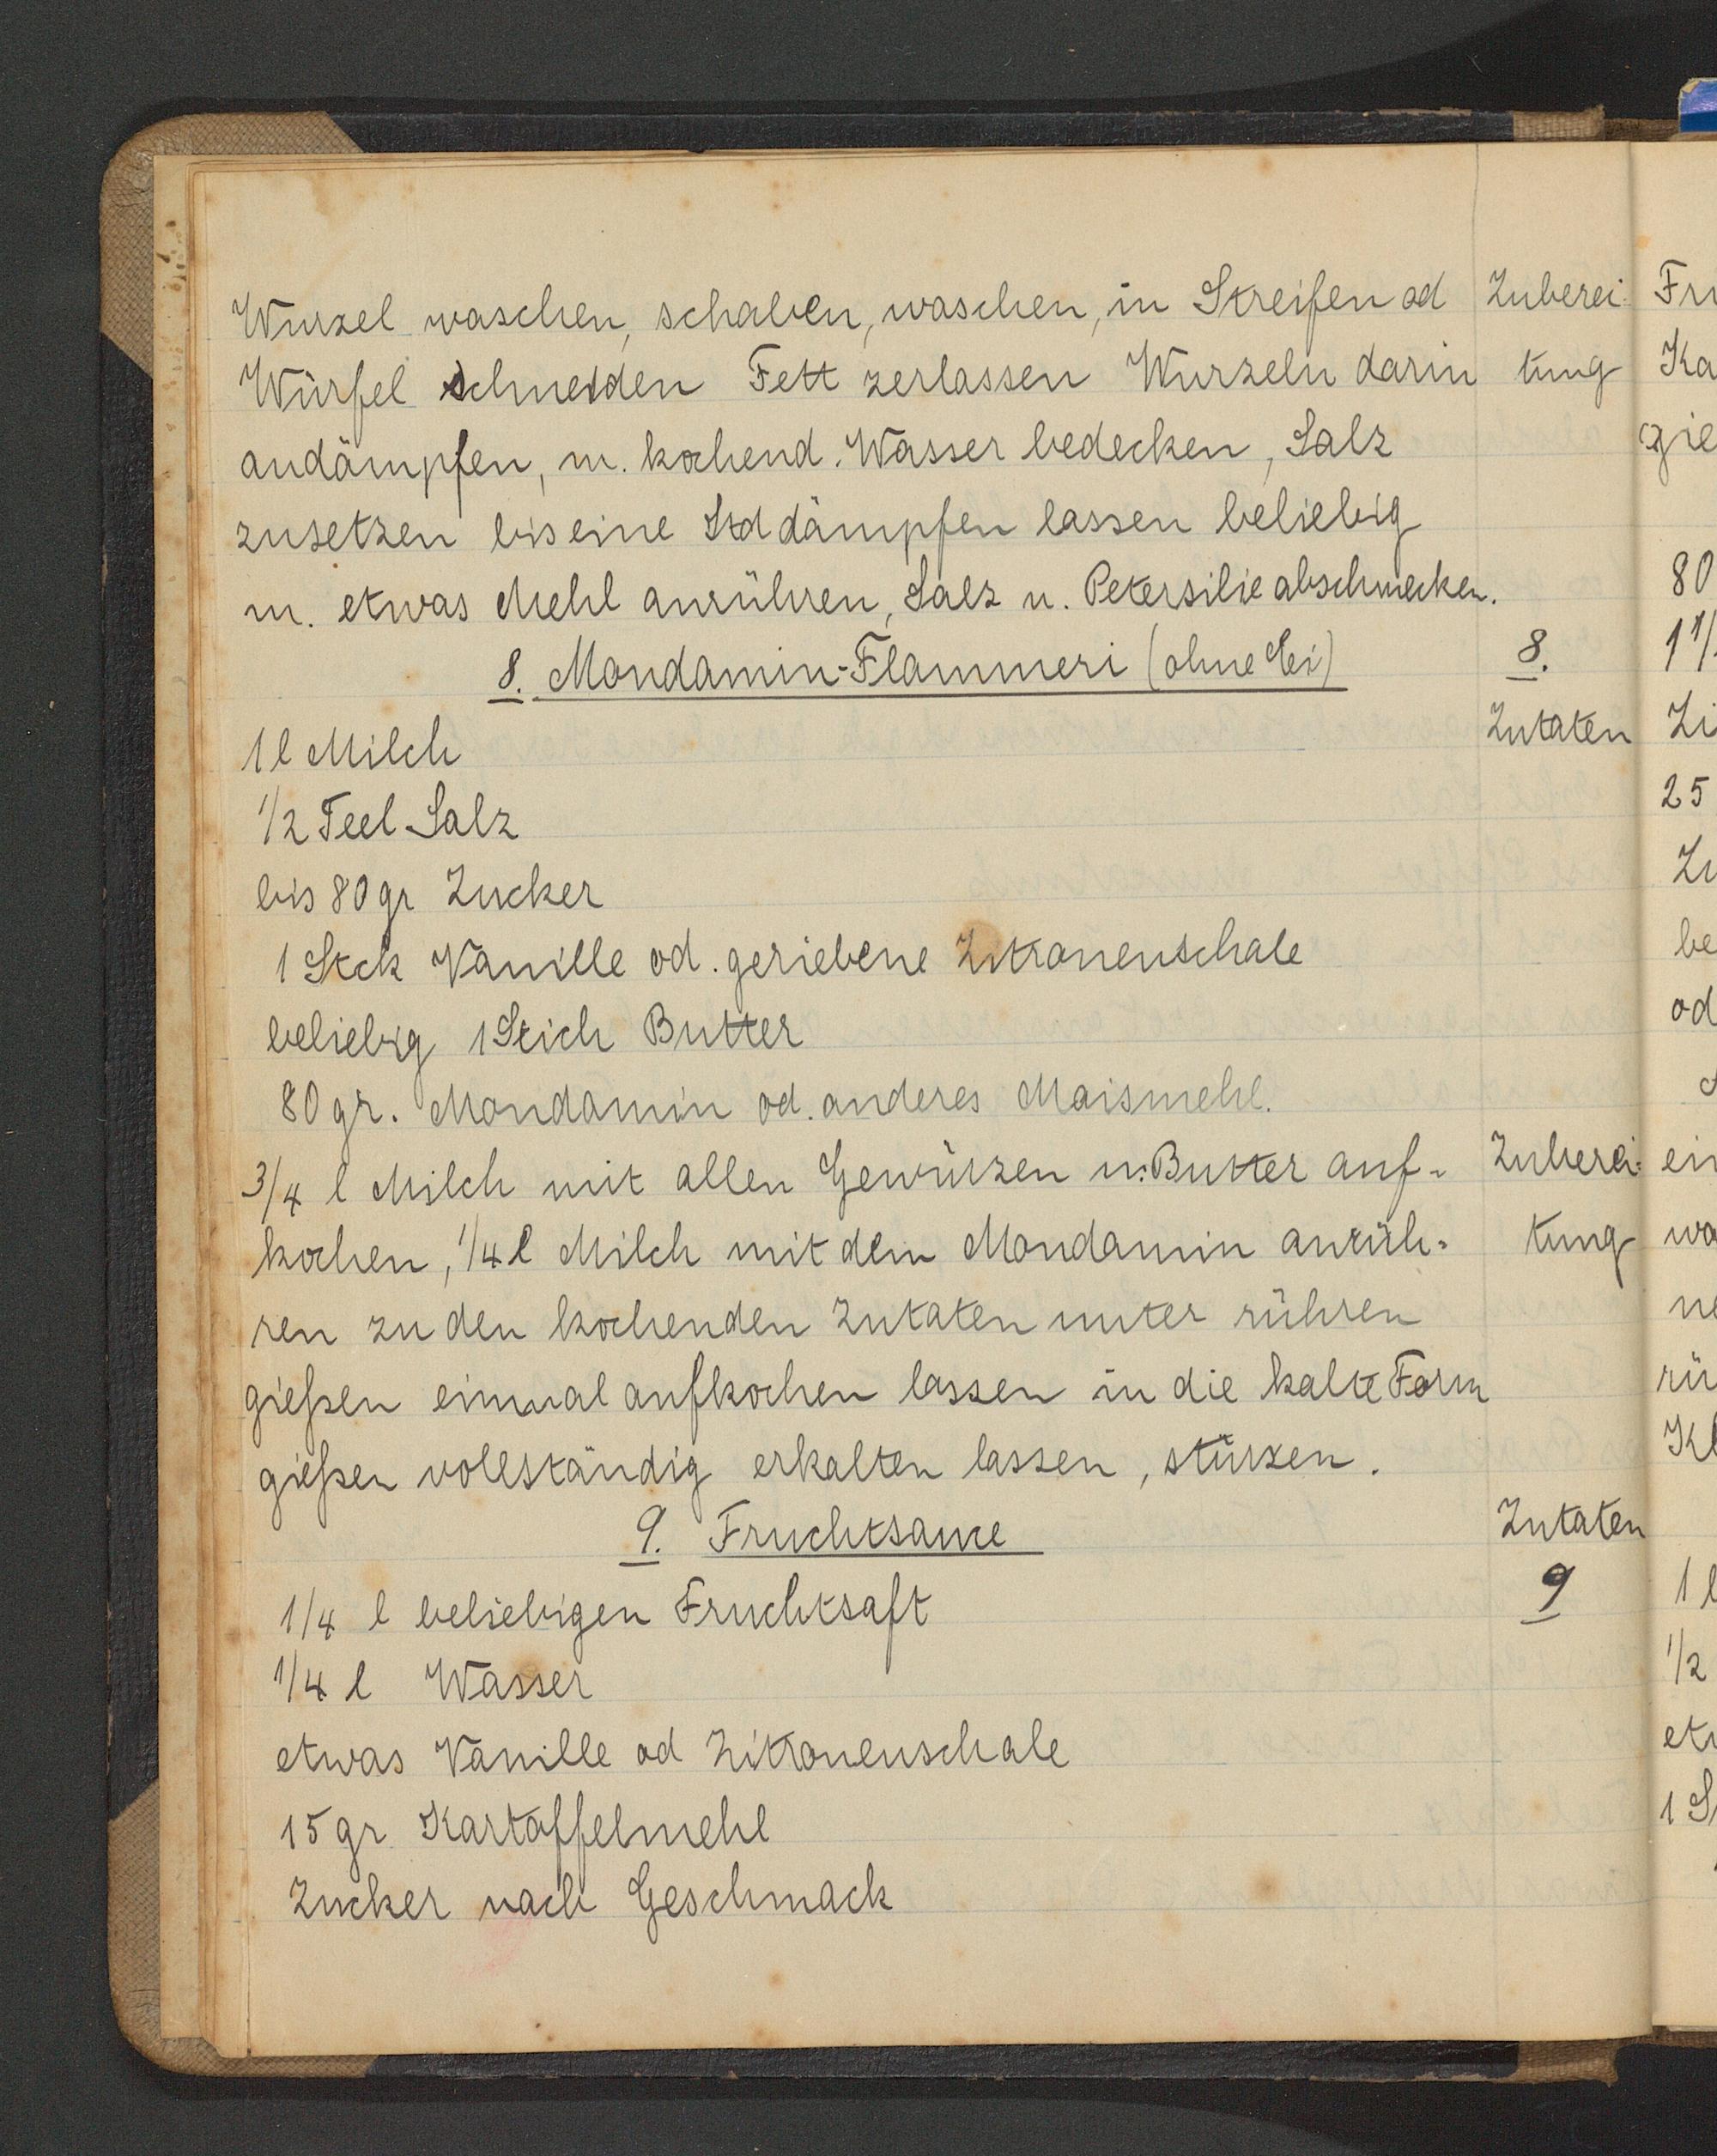 Wurzel waschen, schaben, waschen, in Streifen od Zuberei-
Würfel schneiden Fett zerlassen Wurzeln darin tung
andämpfen, m. kochend. Wasser bedecken, Salz
zusetzen bis eine Std dämpfen lassen beliebig
m. etwas Mehl anrühren, Salz u. Petersilie abschmecken.
8. Mondamin-Flammeri (ohne Ei) 8.
Zutaten
1 l Milch
1/2 Teel Salz
bis 80 gr Zucker
1 Stck Vanille od. geriebene Zitronenschale
beliebig 1 Stich Butter
80 gr. Mondamin od. anderes Maismehl.
3/4 l Milch mit allen Gewürzen u. Butter auf- Zuberei-
kochen, 1/4 l Milch mit dem Mondamin anrüh- tung
ren zu den kochenden Zutaten unter rühren
gießen einmal aufkochen lassen in die kalte Form
gießen vollständig erkalten lassen, stürzen.
9. Fruchtsauce Zutaten
1/4 l beliebigen Fruchtsaft 9
1/4 l Wasser
etwas Vanille od Zitronenschale
15 gr Kartoffelmehl
Zucker nach Geschmack
Fru
Ka
gie
80
1 1/
Zi
25
Zu
be
od
ein
wa
ne
rü
Kl
1 l
1/2
etw
1 S